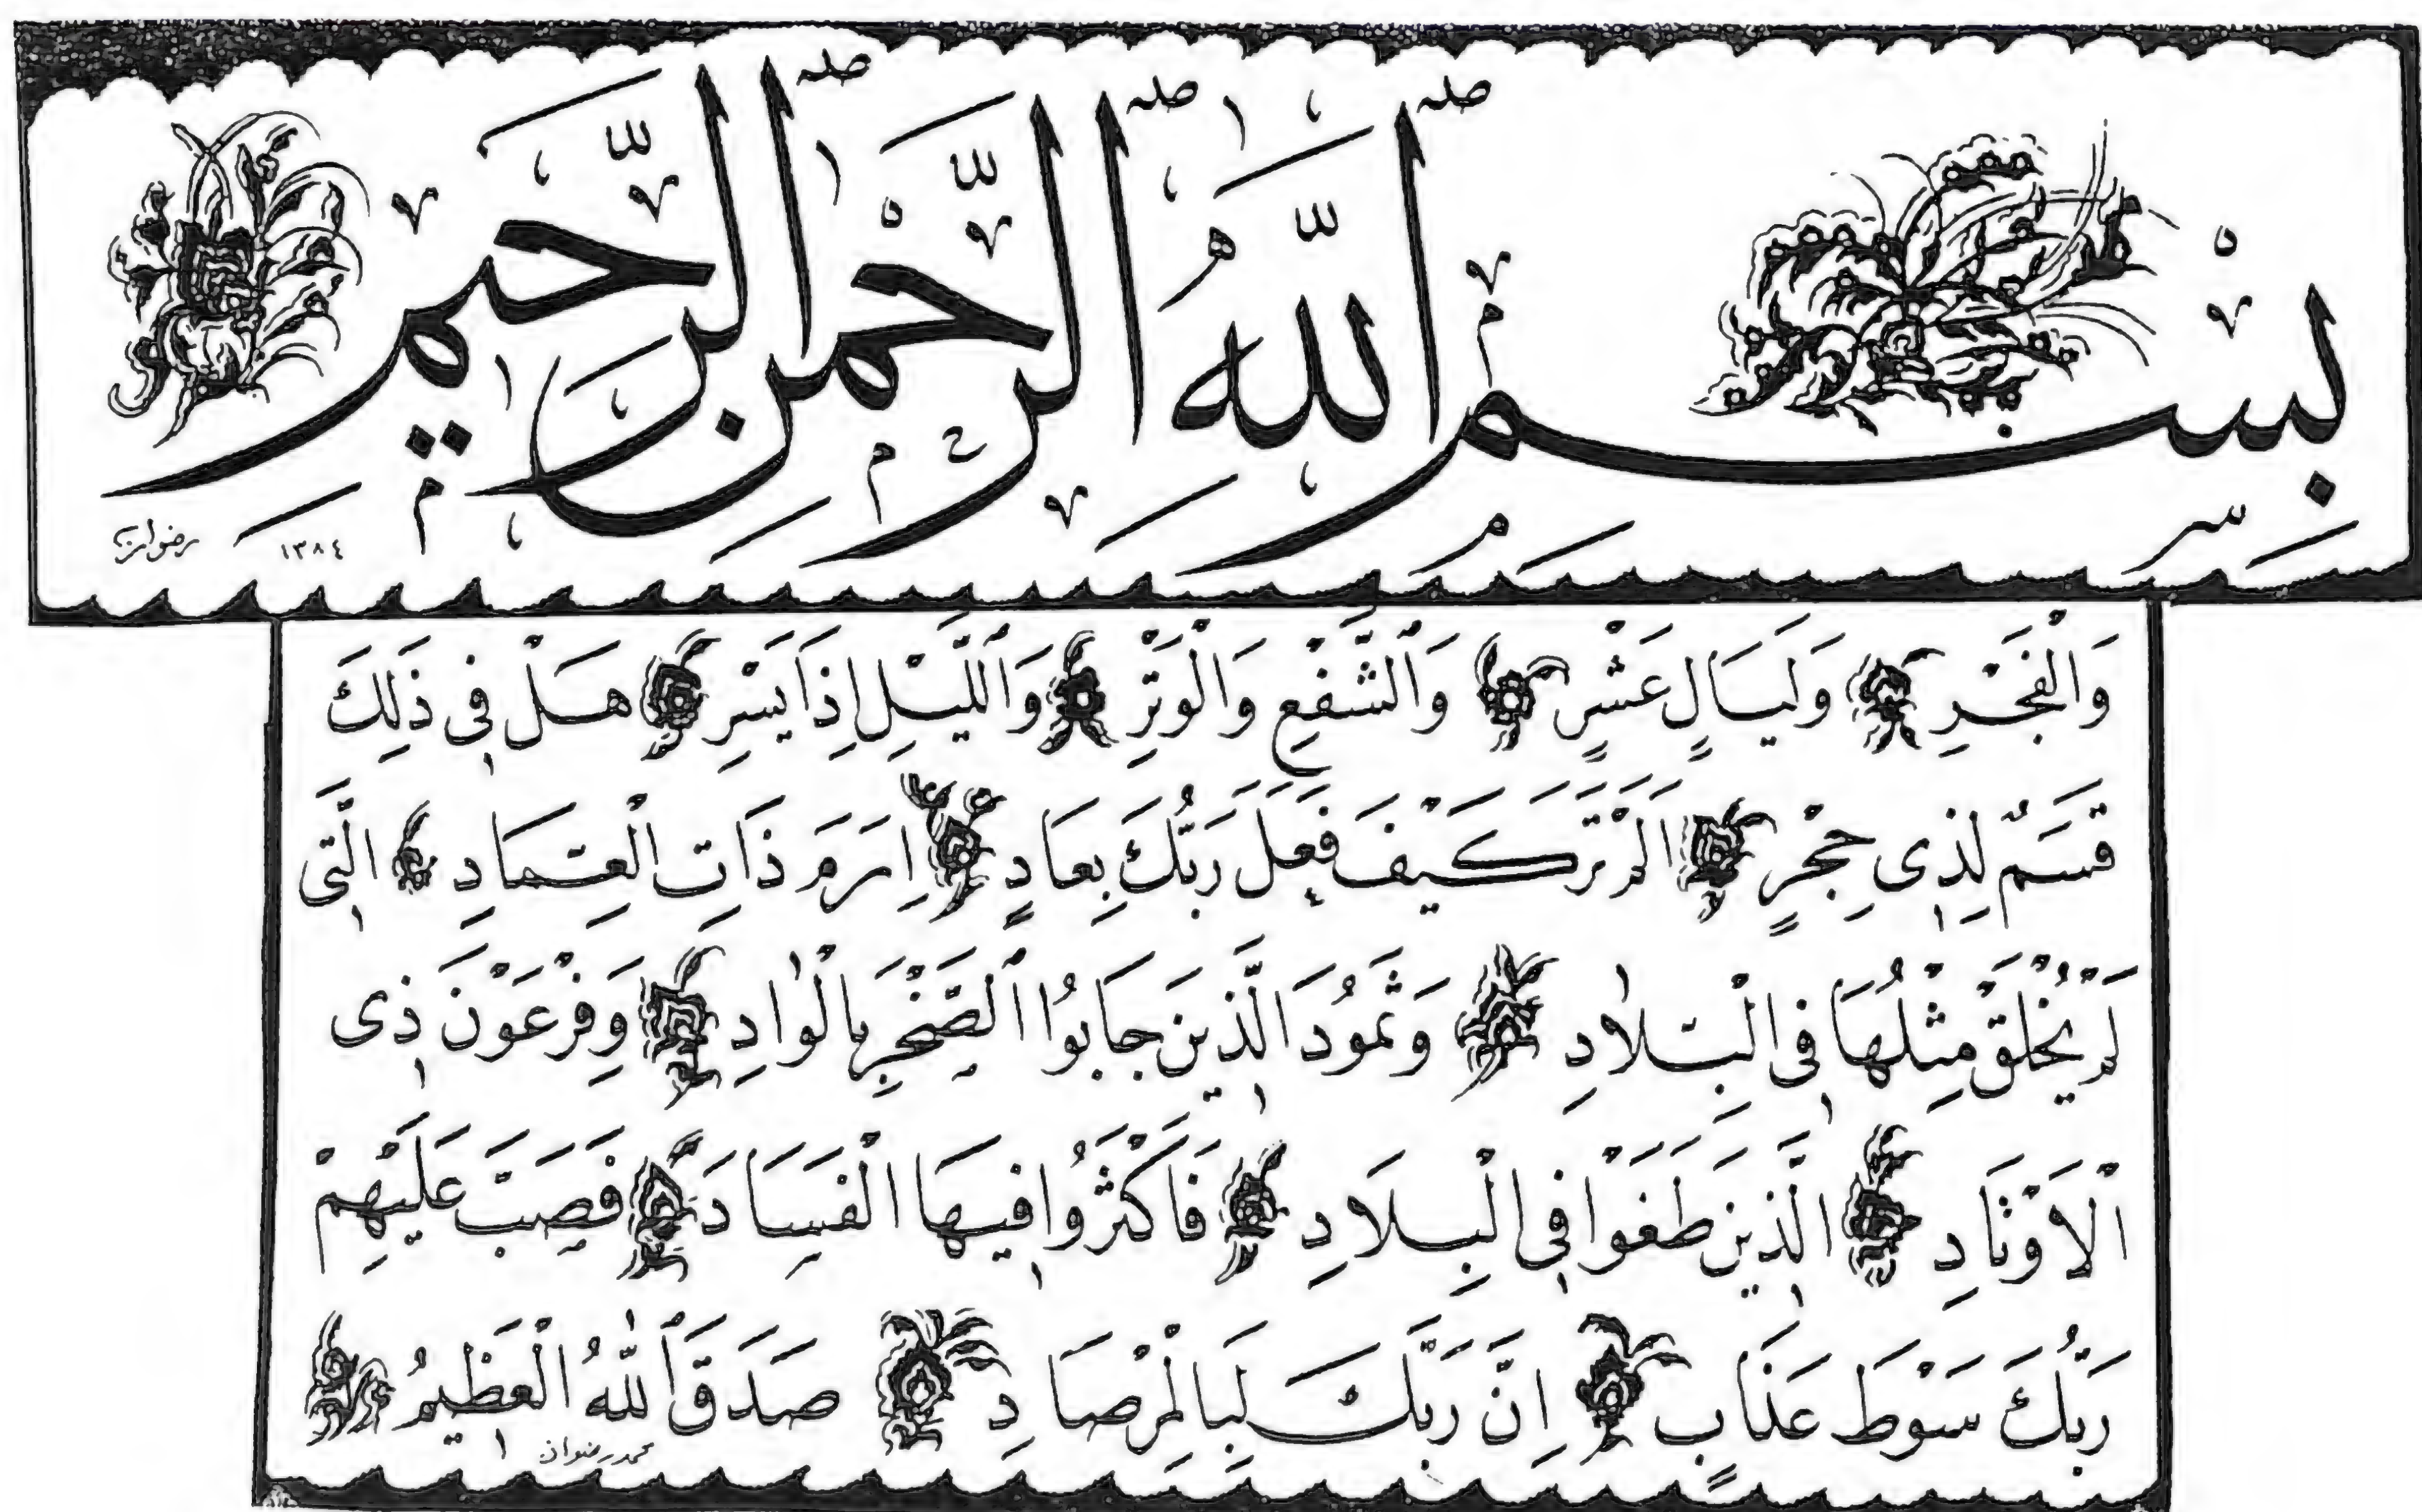 بِسْمِ اللَّهِ الرَّحْمَنِ الرَّحِيمِ
رضوان ١٣٨٤
وَالْفَجْرِ وَلَيَالٍ عَشْرٍ وَٱلشَّفْعِ وَالْوَتْرِ وَٱللَّيْلِ اِذَا يَسْرِ هَلْ فِى ذَلِكَ
قَسَمٌ لِذِى حِجْرٍ اَلَمْ تَرَ كَيْفَ فَعَلَ رَبُّكَ بِعَادٍ اِرَمَ ذَاتِ الْعِمَادِ الَّتِى
لَمْ يُخْلَقْ مِثْلُهَا فِى الْبِلَادِ وَثَمُودَ الَّذِينَ جَابُوا ٱلصَّخْرَ بِالْوَادِ وَفِرْعَوْنَ ذِى
الْاَوْتَادِ الَّذِينَ طَغَوْا فِى الْبِلَادِ فَاَكْثَرُوا فِيهَا الْفَسَادَ فَصَبَّ عَلَيْهِمْ
رَبُّكَ سَوْطَ عَذَابٍ اِنَّ رَبَّكَ لَبِالْمِرْصَادِ صَدَقَ ٱللّٰهُ الْعَظِيمُ
محمد رضوان